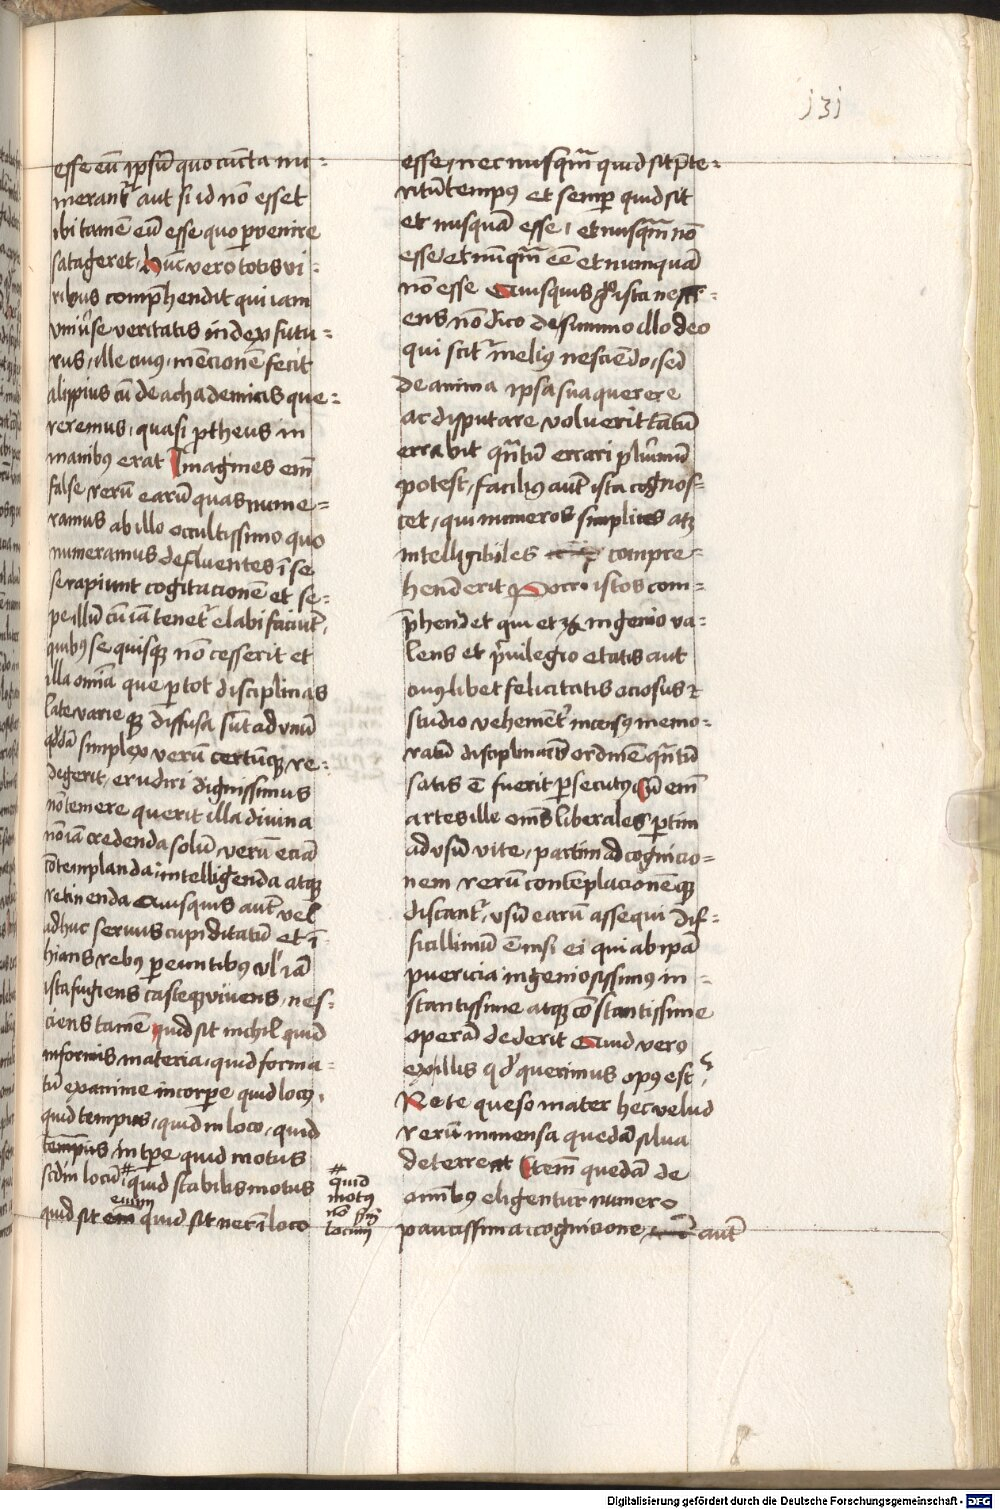 131
esse eū ipsū quo cūcta nu-
merant᷑ aut si id nō esset
ibi tamē eū esse quo ꝑvenire
satageret, hūc vero totis vi-
ribus comp̄hendit qui iam
univ̾se veritatis index futu-
rus, ille cuiꝰ mēcionē fecit
alippius cū de achademicis que-
reremus, quasi ptheus in
manibꝰ erat Imagines em̄
false rerū earū quas nume-
ramus ab illo occultissimo quo
numeramus defluentes ī se
se rapiunt cogitacionē et se-
pe illū cū iā tenet᷑ elabi faciūt,
quibꝰ se quisqꝫ nō cesserit et
illa om̄ia que ꝑ tot disciplinas
late varieqꝫ diffusa sūt ad unū
qd̄dā simplex verū certūqꝫ re-
digerit, erudiri dignissimus
nō temere querit illa divina
nō iā credenda solū verū eciā
cōtemplanda intelligenda atqꝫ
retinenda Quisquis aut̄ vel
adhuc servus cupiditatū et ī-
hians rebꝰ ꝑeuntibꝰ vl̾ iā
ista fugiens casteqꝫ vivens, nes-
ciens tamē quid sit nichil quid
informis materia, quid forma-
tū exanime incorꝑe quid locꝰ,
quid tempus, quid in loco, quid
tempus, in tꝑe quid motus
scd̄m locū # quid stabilis motus
# quid
motꝰ
nō scd̄m
locum
evum
quid sit em̄ quid sit nec ī loco
esse, nec nusqm̄ quid sit p̄te-
ritū tempꝰ et semꝑ quid sit
et nusquā esse, et nusqm̄ nō
esse et nūqm̄ ēē et numquā
nō esse Quisquis gͦ ista nesci-
ens nō dico de summo illo deo
qui scit᷑ meliꝰ nesciēdo, sed
de anima ipsa sua querere
ac disputare voluerit tātū
errabit qn̄tū errari plurimū
potest, faciliꝰ aut̄ ista cognos-
cet, qui numeros simplices atqꝫ
intelligibiles compre-
henderit Porro istos com-
p̄hendet qui et ingenio va-
lens et p̾vilegio etatis aut
cuiꝰlibet felicitatis ociosus et
studio vehement᷑ incēsꝰ memo-
ratū disciplinarū ordinē qn̄tū
satis ē fuerit ꝑsecutꝰ Cū em̄
artes ille om̄s liberales ꝑtim
ad usū vite, partim ad cognicio-
nem rerū contēplacionēqꝫ
discant᷑, usū earū assequi dif-
ficillimū ē nisi ei qui ab ip̄a
puericia ingeniosissimꝰ in-
stantissime atqꝫ cōstantissime
operā dederit Quid vero
ex illis qd̾ querimus opꝰ est,
Ne te queso mater hec velud
rerū immensa quedā silva
deterreat Etem̄ quedā de
om̄ibꝰ eligentur numero
paucissima cognicione, aut̄